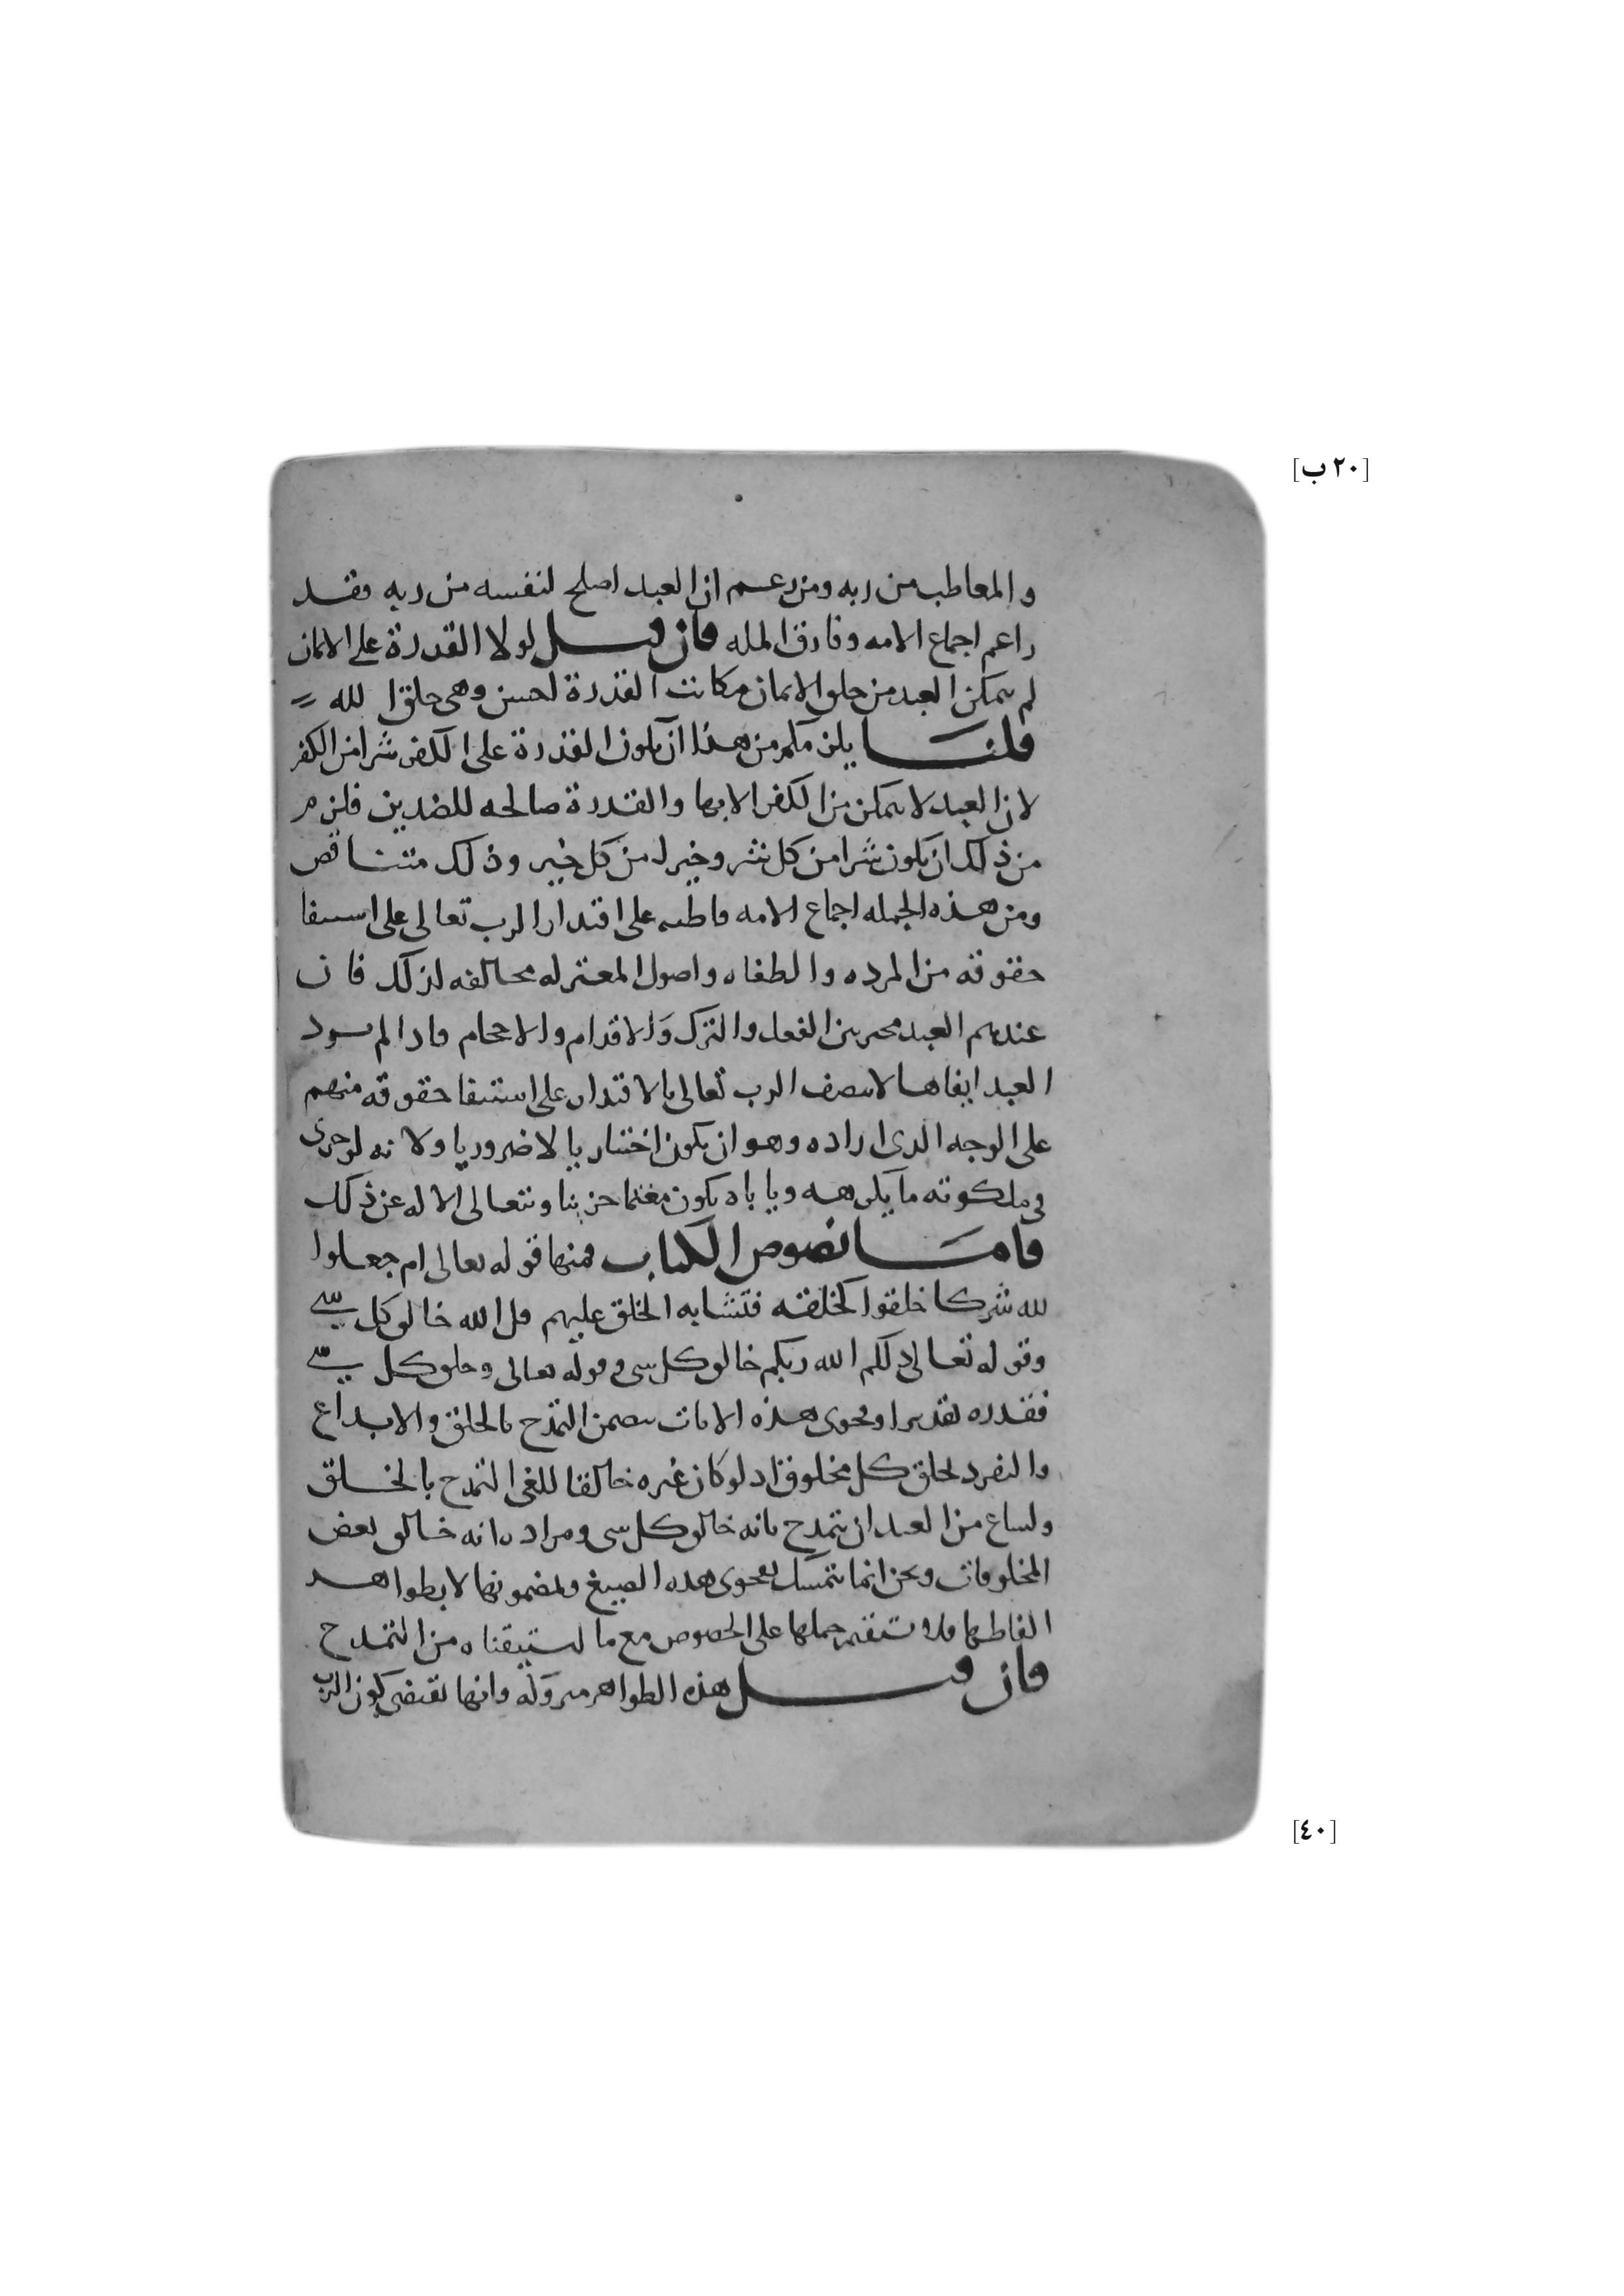 [٢٠ ب]
والمعاطب من ربه ومن زعم ان العبد اصلح لنفسه من ربه فقد
راغم اجماع الامه وفارق المله فان قيل لولا القدرة على الايمان
لم يتمكن العبد من خلق الايمان فكانت القدرة احسن وهي خلق الله
قلنا يلزمكم من هذا ان يكون القدرة على الكفر شرا من الكفر
لان العبد لا يتمكن من الكفر الا بها والقدرة صالحه للضدين فلزم
من ذلك ان يكون شرا من كل شر وخيرا من كل خير وذلك متناقض
ومن هذه الجمله اجماع الامه قاطبه على اقتدار الرب تعالى على استيفا
حقوقه من المرده والطغاه واصول المعتزله مخالفه لذلك فان
عندهم العبد مخير بين الفعل والترك والاقدام والاحجام فاذا لم يرد
العبد ايفاها لا يتصف الرب تعالى بالاقتدار على استيفا حقوقه منهم
على الوجه الذى اراده وهو ان يكون اختياريا لا ضروريا ولانه لو جرى
في ملكوته ما يكرهه وياباه يكون مغتما حزينا ويتعالى الاله عن ذلك
فاما نصوص الكتاب فمنها قوله تعالى ام جعلوا
لله شركا خلقوا كخلقه فتشابه الخلق عليهم قل الله خالق كل شي
وقوله تعالى ذلكم الله ربكم خالق كل شي وقوله تعالى وخلق كل شي
فقدره تقديرا وفحوى هذه الايات يتضمن التمدح بالخلق والابداع
والتفرد بخلق كل مخلوق اذ لو كان غيره خالقا للغى التمدح بالخلق
ولساغ من العبد ان يتمدح بانه خالق كل شي ومراده انه خالق بعض
المخلوقات ونحن انما نتمسك بفحوى هذه الصيغ ومضمونها لا بظواهر
الفاظها فلا يستقيم حملها على الخصوص مع ما استيقناه من التمدح
فان قيل هذه الظواهر متروكه وانها تقتضى كون الرب
[٤٠]